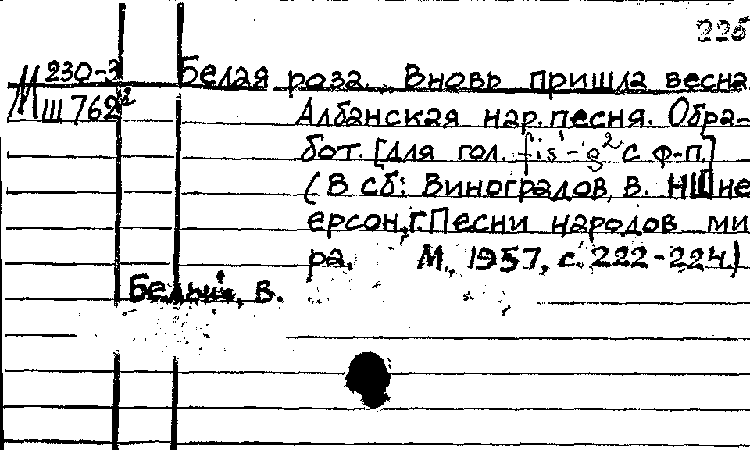 225
М 230-3
Ш 762²
Белая роза. Вновь пришла весна
Албанская нар. песня. Обра-
бот. [Для гол. fis¹-g² с ф-п.]
(В сб: Виноградов, В. НШне
ерсон, Г. Песни народов ми
ра, М., 1957, с. 222-224)
Белый, В.